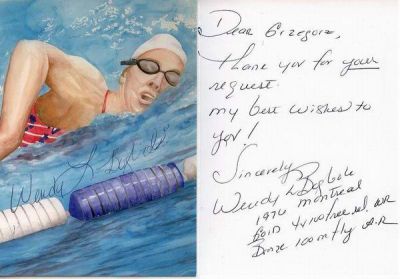 Wendy L Boglioli
Dear Grzegorz,
Thank you for your
request.
my best wishes to
you!
Sincerely
Wendy L Boglioli
1976 Montreal
Gold 4x100 free rel. WR
Bronze 100m fly A.R